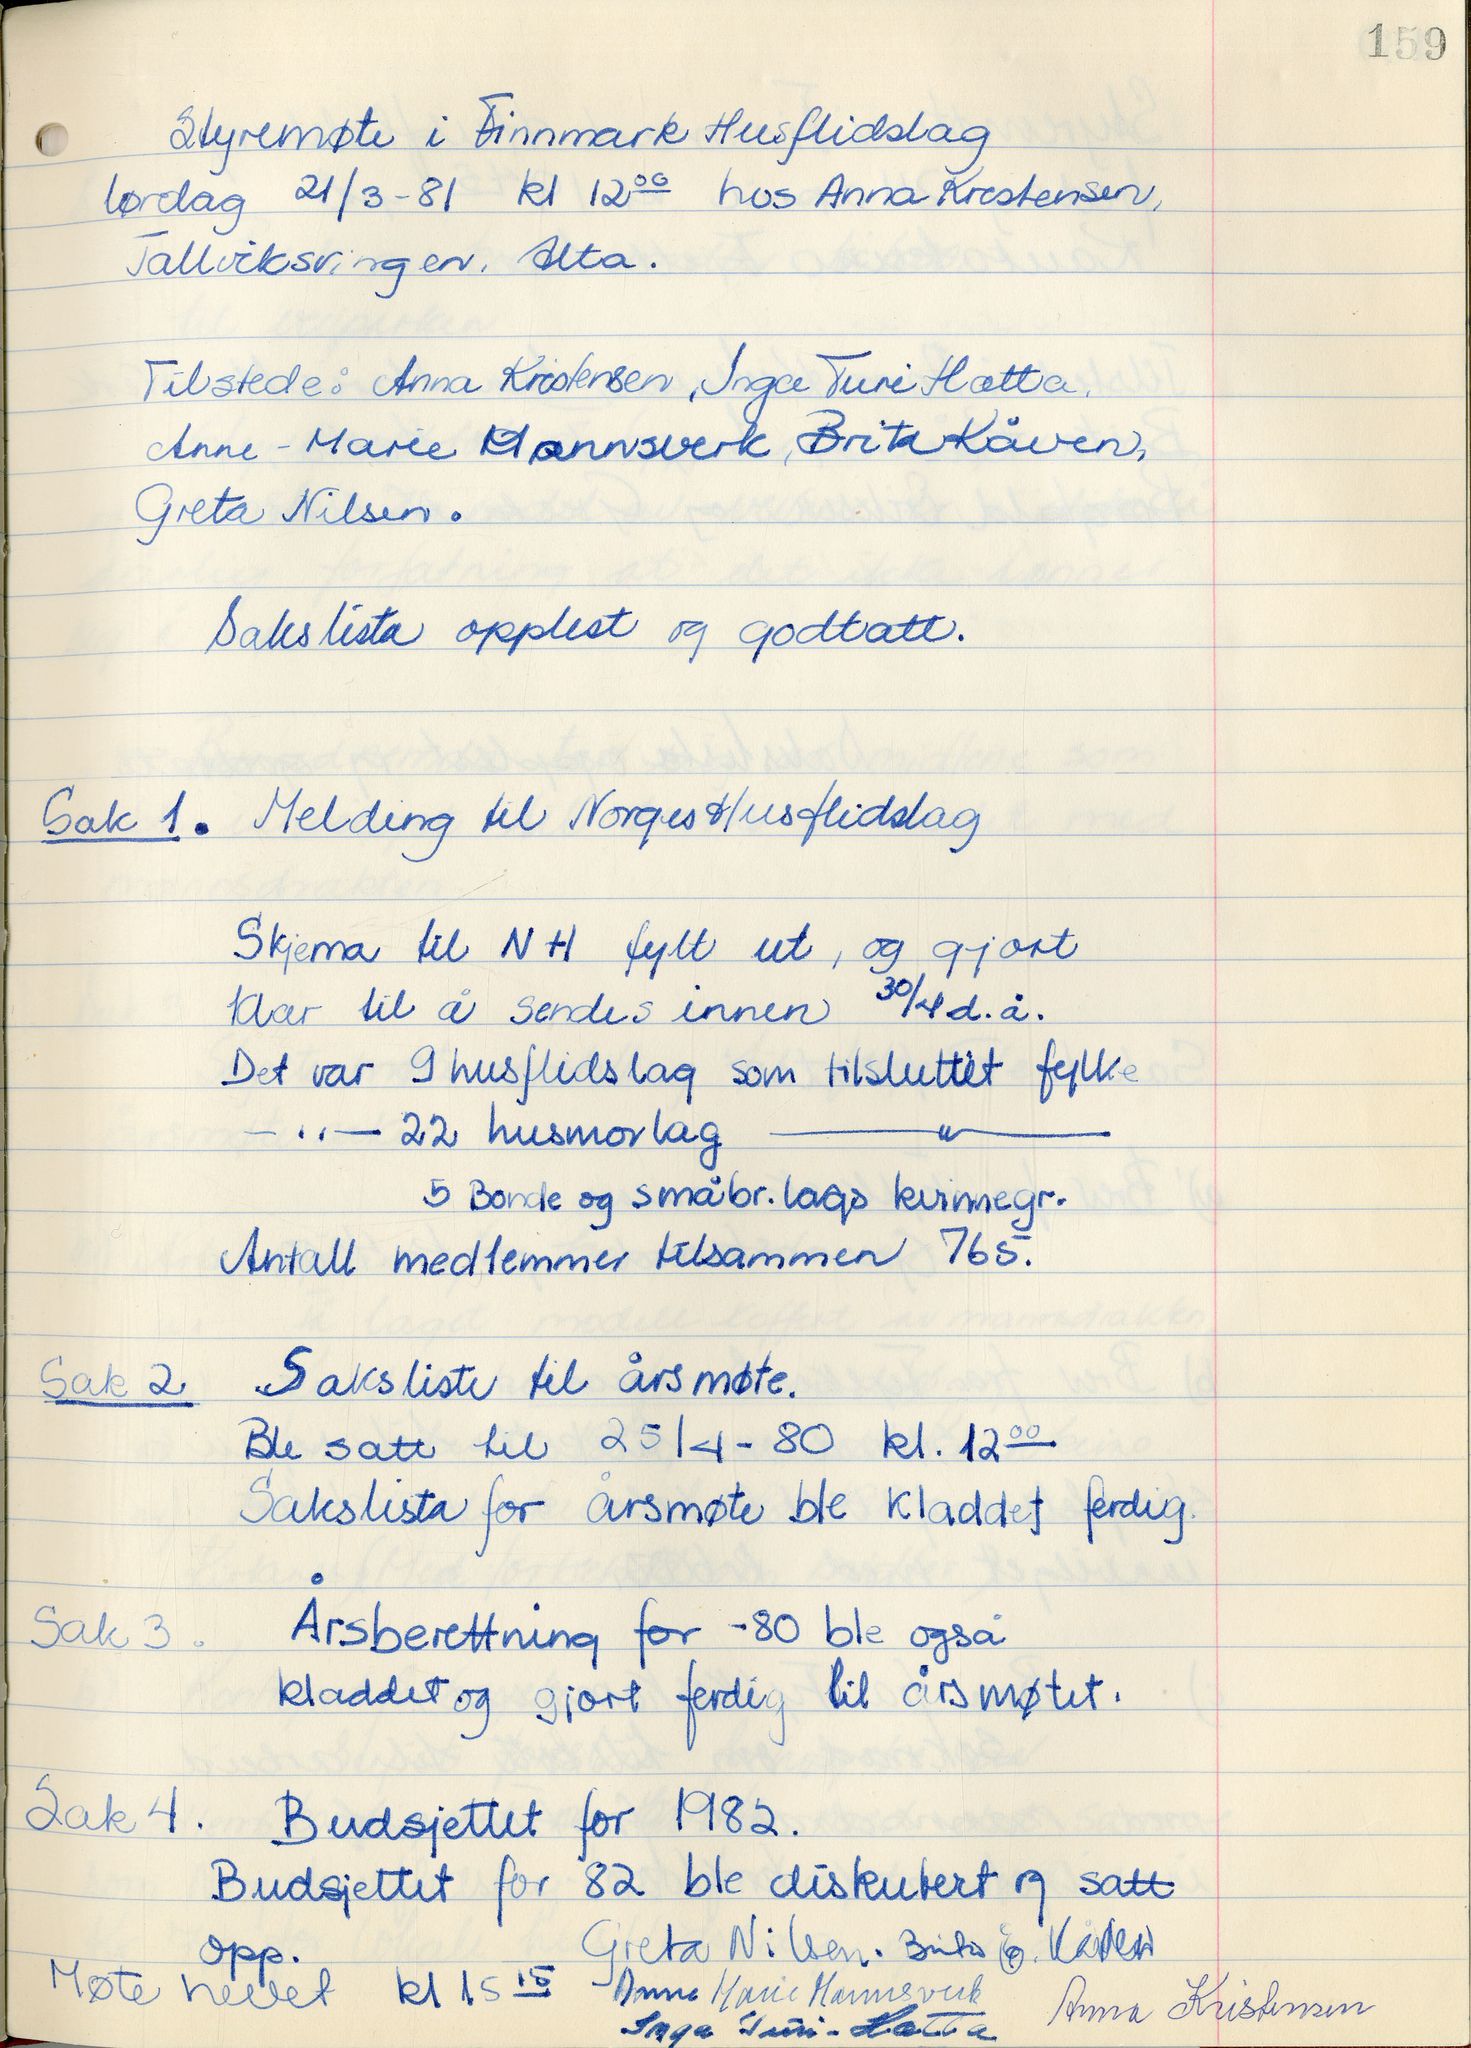 159
Styremøte i Finnmark Husflidslag
lørdag 21/3-81 kl 12⁰⁰ hos Anna Kristensen,
Tallviksvingen. Alta.
Tilstede: Anna Kristensen, Inga Turi Hatta,
Anne-Marie Mannsverk, Brita Kåven,
Greta Nilsen.
Sakslista opplest og godtatt.
Sak 1. Melding til Norges Husflidslag
Skjema til NH fylt ut, og gjort
klar til å sendes innen 30/4 d.å.
Det var 9 husflidslag som tilsluttet fylke
— ,, — 22 husmorlag — " —
5 Bonde og småbr.lags kvinnegr.
Antall medlemmer tilsammen 765.
Sak 2 Saksliste til årsmøte.
Ble satt til 25/4-80 kl. 12⁰⁰
Sakslista for årsmøte ble kladdet ferdig.
Sak 3. Årsberettning for -80 ble også
kladdet og gjort ferdig til årsmøtet.
Sak 4. Budsjettet for 1982.
Budsjettet for 82 ble diskutert og satt
opp. Greta Nilsen. Brita Kåven
Møte hevet kl 15¹⁵ Anne Marie Mannsverk Anna Kristensen
Inga Turi-Hatta